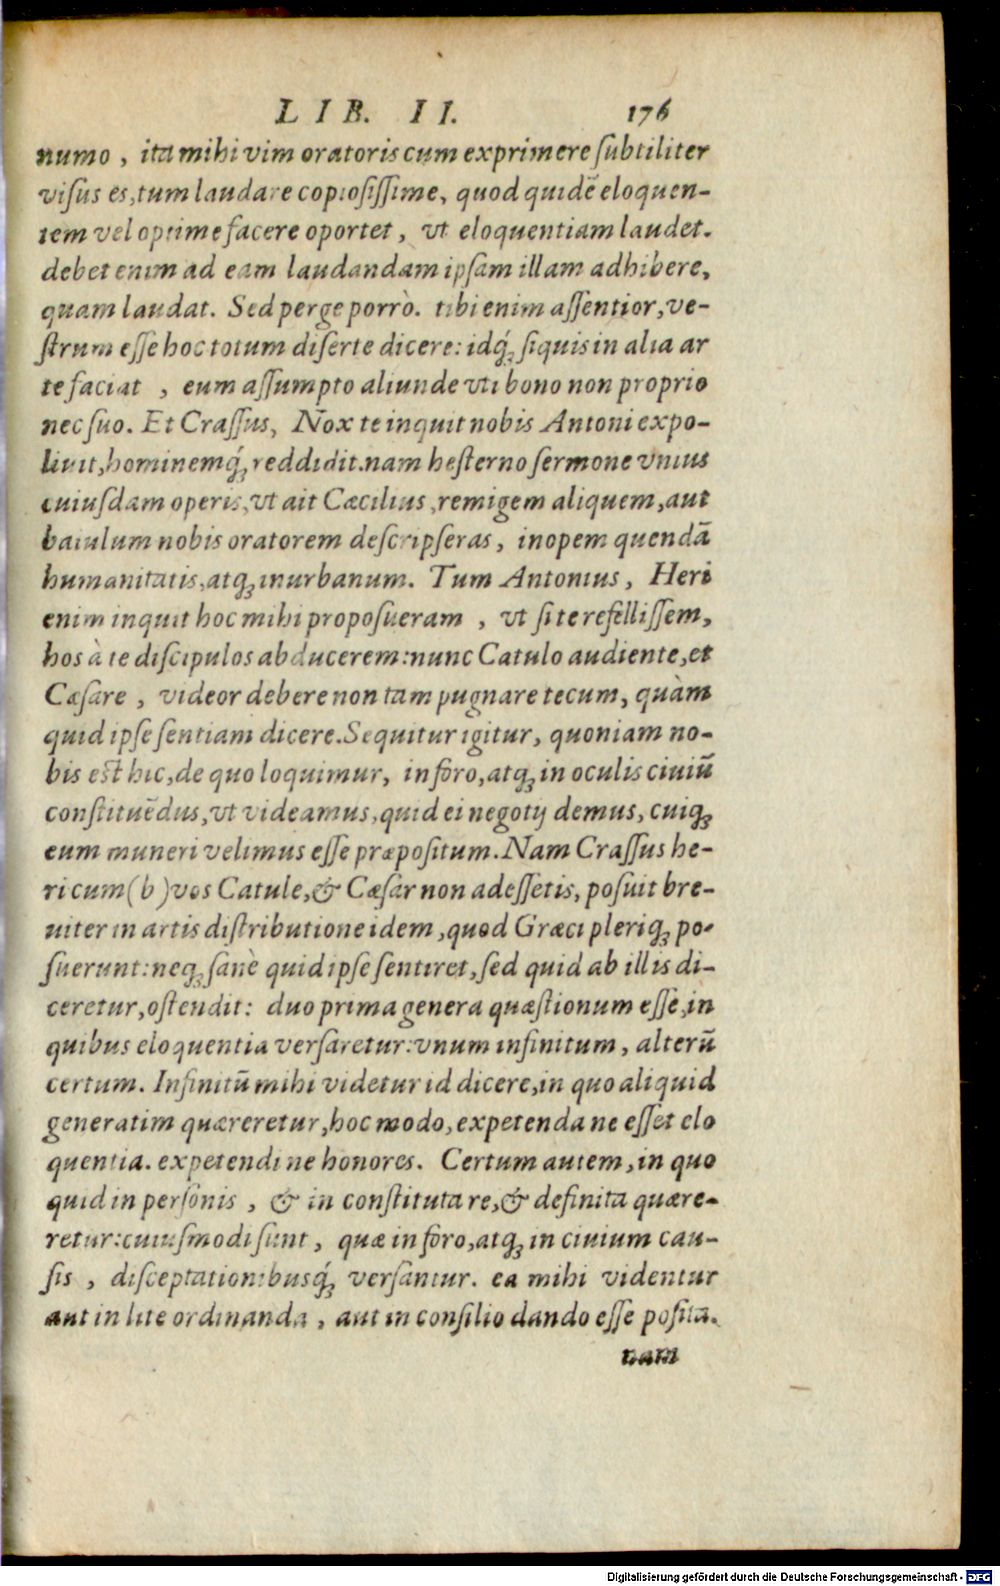 LIB. II. 176
numo, ita mihi vim oratoris cum exprimere subtiliter
visus es, tum laudare copiosissime, quod quidē eloquen-
tem vel optime facere oportet, vt eloquentiam laudet.
debet enim ad eam laudandam ipsam illam adhibere,
quam laudat. Sed perge porrò. tibi enim assentior, ve-
strum esse hoc totum diserte dicere: idq́; siquis in alia ar
te faciat, eum assumpto aliunde vti bono non proprio
nec suo. Et Crassus, Nox te inquit nobis Antoni expo-
liuit, hominemq́; reddidit. nam hesterno sermone vnius
cuiusdam operis, vt ait Cæcilius, remigem aliquem, aut
baiulum nobis oratorem descripseras, inopem quendā
humanitatis, atq; inurbanum. Tum Antonius, Heri
enim inquit hoc mihi proposueram, vt si te refellissem,
hos à te discipulos abducerem: nunc Catulo audiente, et
Cæsare, videor debere non tam pugnare tecum, quàm
quid ipse sentiam dicere. Sequitur igitur, quoniam no-
bis est hic, de quo loquimur, in foro, atq; in oculis ciuiū
constituēdus, vt videamus, quid ei negotij demus, cuiq;
eum muneri velimus esse præpositum. Nam Crassus he-
ri cum (b) vos Catule, & Cæsar non adessetis, posuit bre-
uiter in artis distributione idem, quod Græci pleriq; po-
suerunt: neq; sanè quid ipse sentiret, sed quid ab illis di-
ceretur, ostendit: duo prima genera quæstionum esse, in
quibus eloquentia versaretur: vnum infinitum, alterū
certum. Infinitū mihi videtur id dicere, in quo aliquid
generatim quæreretur, hoc modo, expetenda ne esset elo
quentia. expetendi ne honores. Certum autem, in quo
quid in personis, & in constituta re, & definita quære-
retur: cuiusmodi sunt, quæ in foro, atq; in ciuium cau-
sis, disceptationibusq́; versantur. ea mihi videntur
aut in lite ordinanda, aut in consilio dando esse posita.
nam
Digitalisierung gefördert durch die Deutsche Forschungsgemeinschaft - DFG